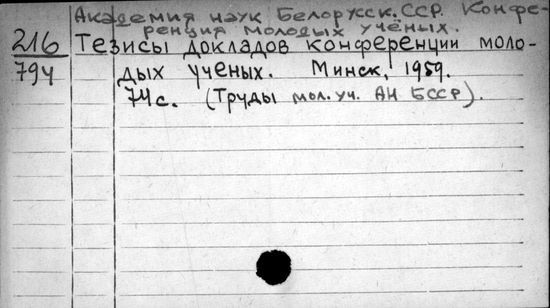 Академия наук Белорусск.ССР. Конфе-
ренция молодых учёных.
216 Тезисы докладов конференции моло-
794 дых ученых. Минск, 1959.
74с. (Труды мол.уч. АН БССР).